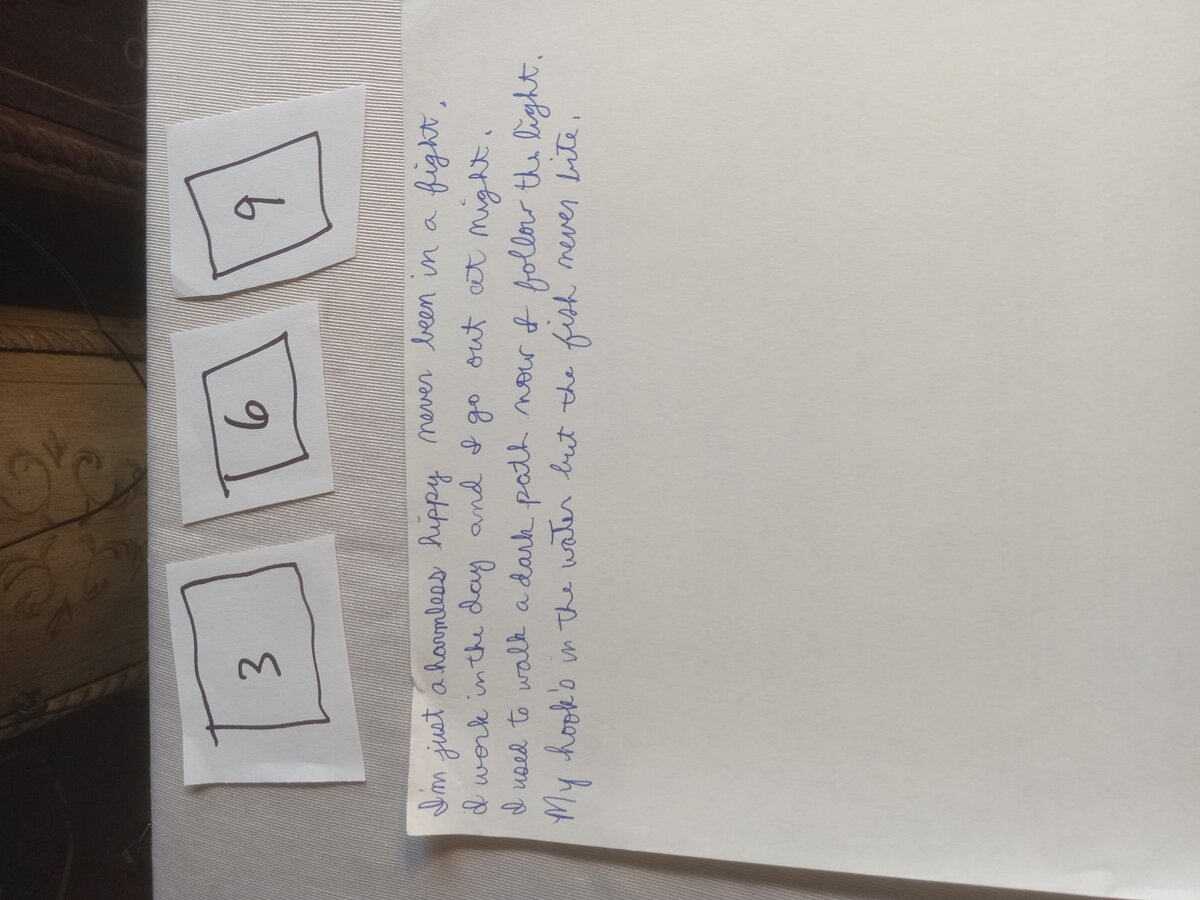 3 6 9
I'm just a harmless hippy never been in a fight.
I work in the day and I go out at night.
I used to walk a dark path now I follow the light.
My hook's in the water but the fish never bite.